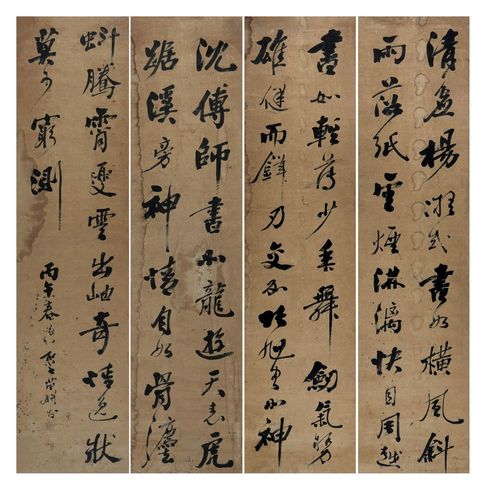 清虛楊凝式書如橫風斜
雨落紙雲煙淋漓快目周越
書如輕薄少年舞劍氣勢
雄健而鋒刃交加張旭書如神
沈傅師書如龍遊天表虎
踞溪旁神情自如骨灋
虯騰霄夏雲出岫奇情逸狀
莫可窮測
丙午春